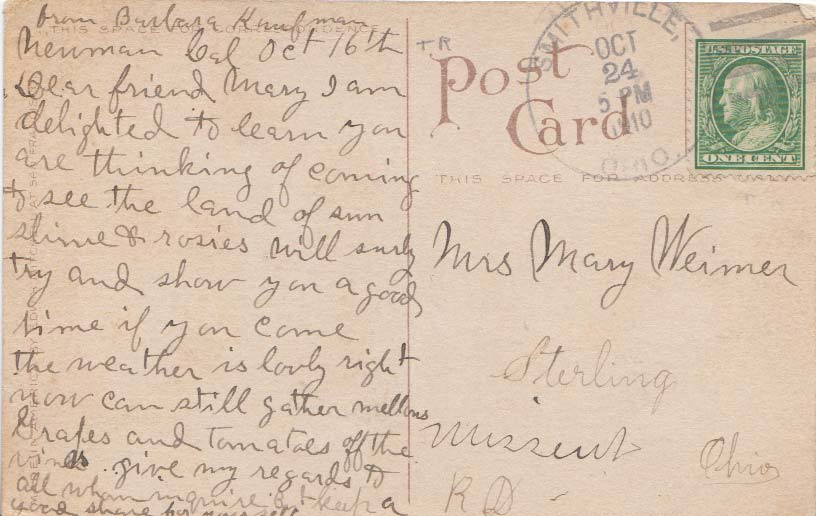 from Barbara Kaufman
THIS SPACE FOR CORRESPONDENCE
Newman Cal Oct 16th
Dear friend Mary I am
delighted to learn you
are thinking of coming
to see the land of sun
shine & rosies will surly
try and show you a good
time if you come
the weather is lovly right
now can still gather mellons
Grapes and tomatoes off the
vines give my regards to
all whom inquire & keep a
good share for your self
TR
Post
Card
THIS SPACE FOR ADDRESS
SMITHVILLE,
OCT
24
5 PM
1910
OHIO.
U.S. POSTAGE
ONE CENT
Mrs Mary Weimer
Sterling
Missent
Ohio
RD -